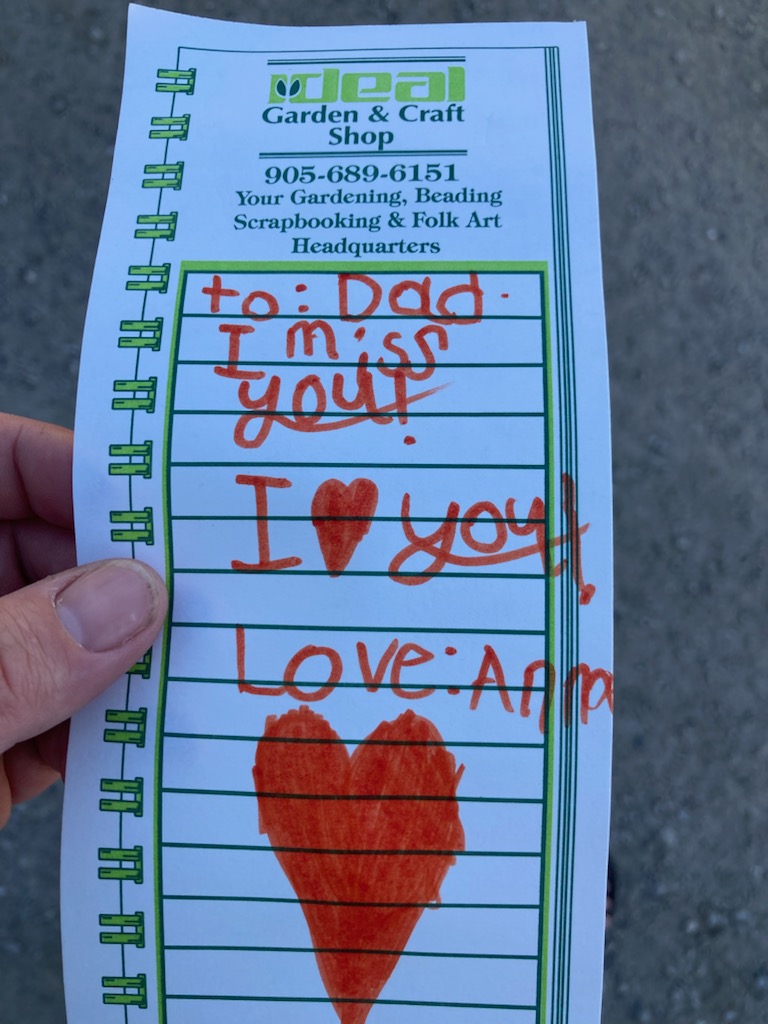 ideal
Garden & Craft
Shop
905-689-6151
Your Gardening, Beading
Scrapbooking & Folk Art
Headquarters
to: Dad.
I miss
you!
I ♥ you!
Love: Anna